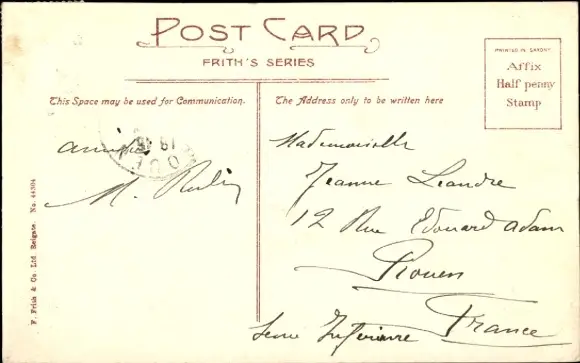 POST CARD
FRITH'S SERIES
PRINTED IN SAXONY
Affix
Half penny
Stamp
This Space may be used for Communication.
The Address only to be written here
M.
Mademoiselle
Jeanne Leandre
12 Rue Edouard Adam
Rouen
Seine Inférieure France
F. Frith & Co. Ltd. Reigate. No. 44304